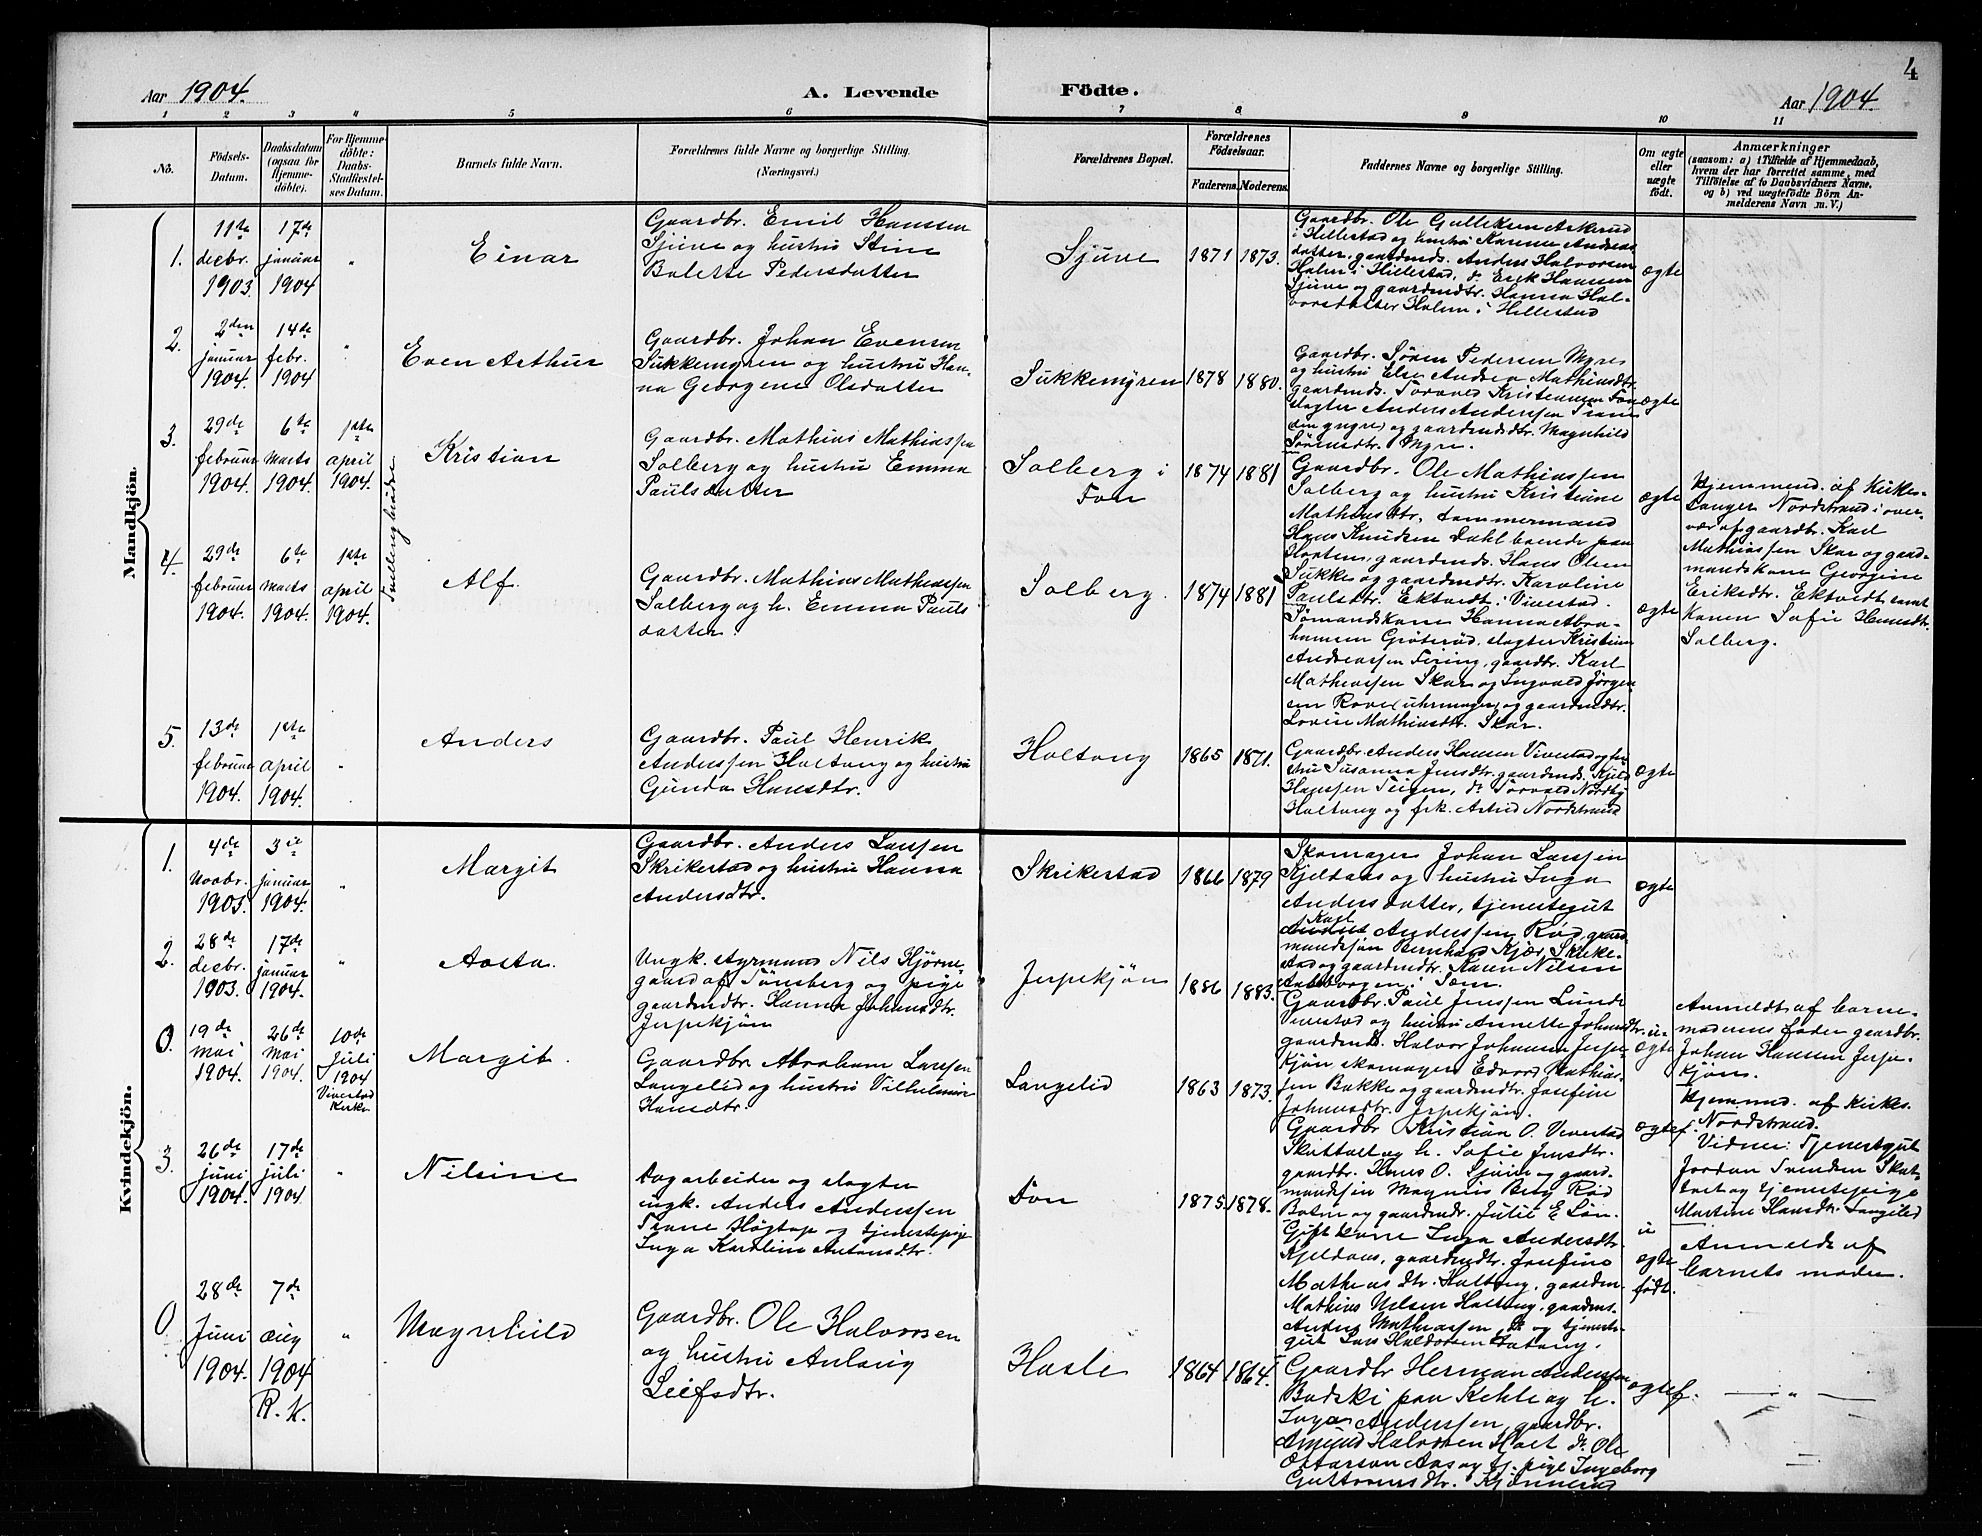 4
Aar 1904.
A. Levende
Födte.
Aar 1904.
1 2 3 4 5 6 7 8 9 10 11
No.
Födsels-
Datum.
Daabsdatum
(ogsaa for
Hjemme-
döbte).
For Hjemme-
döbte:
Daabs-
Stadfæstel-
ses Datum.
Barnets fulde Navn.
Forældrenes fulde Navne og borgerlige Stilling.
(Næringsvei.)
Forældrenes Bopæl.
Forældrenes
Födselsaar.
Faderens.
Moderens.
Faddernes Navne og borgerlige Stilling.
Om ægte
eller
uægte
født.
Anmærkninger
(saasom: a) i Tilfælde af Hjemmedaab,
hvem der har forrettet samme, med
Tilföielse af to Daabsvidners Navne,
og b) ved uægtefödte Börn An-
melderens Navn m. V.)
Mandkjön
1.
11te
decbr.
1903.
17de
januar
1904
"
Einar
Gaardbr. Emil Hanssen
Sjuve og hustru Stine
Bolette Pedersdatter
Sjuve
1871
1873.
Gaardbr. Ole Gulliksen Askerud
i Hillestad og hustru Karen Andreas
datter, gaardmds. Anders Halvorsen
Holm i Hillestad, do Erik Hansen
Sjuve og gaardmdtr. Hanna Hal-
vorsdatter Holm i Hillestad
ægte
2.
2den
januar
1904.
14de
febr.
1904
"
Even Arthur
Gaardbr. Johan Evensen
Sukkemyren og hustru Han-
na Georgene Olsdatter
Sukkemyren
1878
1880.
Gaardbr. Søren Pedersen Myre
og hustru Else Andrea Mathiasdtr.
gaardmds. Torvald Kristensen Fon
slagter Anders Anderssen Trane
(den yngre) og gaardmdsdtr. Magnhild
Sørensdtr. Myre.
ægte
3.
29de
februar
1904.
6te
marts
1904.
1ste
april
1904.
Tvillingbrødre
Kristian
Gaardbr. Mathias Mathiassen
Solberg og hustru Emma
Paulsdatter
Solberg i
Fon
1874
1881
Gaardbr. Ole Mathiassen
Solberg og hustru Kristiane
Mathiasdtr. tømmermand
Hans Knudsen Dahl boende paa
Horten, gaardmds. Hans Olsen
Sukke og gaardmdtr. Karoline
Paulsdtr. Ektvedt i Vivestad.
ægte
Hjemmed. af Kirke-
sanger Nordstrand i over-
vær af gaardbr. Karl
Mathiassen Skar og gaard-
mandskone Georgine
Eriksdtr. Ektvedt samt
konen Sofie Hansdtr.
Solberg.
4.
29de
februar
1904.
6te
marts
1904.
1ste
april
1904.
Alf.
Gaardbr. Mathias Mathiassen
Solberg og h. Emma Pauls
datter.
Solberg.
1874
1881
Sømandskone Hanna Abra-
hamsen Grøterød, slagter Kristian
Andreassen Firing, gaardbr. Karl
Mathiassen Skar og Ingvald Jørgen
sen Rove (uhrmager) og gaardmdtr.
Lovise Mathiasdtr. Skar.
ægte
5.
13de
februar
1904.
1ste
april
1904.
"
Anders
Gaardbr. Paul Henrik
Anderssen Holtung og hustru
Gunda Hansdtr.
Holtung
1865
1871.
Gaardbr. Anders Hansen Vivestad og hu-
stru Susanna Jensdtr. gaardmds. Kjeld
Hanssen Teigen, do Torvald Nordby
Holtung og frk. Astrid Nordstrand
ægte
Kvindekjön.
1.
4de
Novbr.
1903.
3die
januar
1904.
"
Margit
Gaardbr. Anders Larssen
Skrikestad og hustru Hanna
Andersdtr.
Skrikestad
1866
1879
Skomager Johan Larssen
Kjeldaas og hustru Inga
Andersdatter, tjenestegut
Karl
Anderssen Rød, gaard
mandssøn Bernhard Kjær Skrike-
stad og gaardmdtr. Karen Nilsen
i Fon.
ægte
2.
28de
decbr.
1903.
17de
januar
1904.
"
Aasta.
Ungk. Styrmand Nils Hjørne-
gaard af Tønsberg og pige
gaardmdtr. Hanna Johansdtr.
Jerpekjøn
Jerpekjøn
1886
1883.
Gaardbr. Paul Jenssen Lunde
Vivestad og hustru Annette Johansdtr.
gaardmds. Halvor Johansen Jerpe-
kjøn skomager Edvard Mathias-
sen Bakke og gaardmdtr. Josefine
Johansdtr. Jerpekjøn.
u-
ægte
Anmeldt af barne-
moderens fader gaardbr.
Johan Hansen Jerpe-
kjøn.
0.
19de
mai
1904.
26de
Mai
1904.
10de
Juli
1904
Vivestad
Kirke
Margit.
Gaardbr. Abraham Larssen
Langelid og hustru Vilhelmine
Hansdtr.
Langelid
1863
1873.
Gaardbr Kristian O. Vivestad
Skattvet og h. Sofie Jensdtr.
gaardbr. Hans O. Sjuve og gaard-
mandssøn Magnus Berg Rød
Botne og gaardmdr. Julie E Løn.
ægtef.
Hjemmed. af Kirkes.
Nordstrand.
Vidner: Tjenestgut
Jordan Svendsen Skat
tvet og tjenestepige
Martine Hansdtr. Langelid
3.
26de
juni
1904.
17de
juli
1904.
"
Nilsine
Dagarbeider og slagter
ungk. Anders Anderssen
Trane Høgtop og tjenestepige
Inga Karoline Antonsdtr.
Fon
1875.
1878.
Gift kone Inga Andersdtr.
Kjeldaas, gaardmdtr. Josefine
Mathiasdtr. Holtung, gaardm.
Mathias Nilsen Holtung, gaardms.
Anders Mathiassen, do og tjeneste-
gut Lars Haldorsen Holtung.
u
ægte
født.
Anmeldt af
barnets moder.
0.
28de
Juni
1904.
7de
aug
1904
R. K.
"
Magnhild
Gaardbr. Ole Halvorsen
og hustru Anlaug
Leifsdtr.
Hasle
1864
1864.
Gaardbr Herman Anderssen
Budski paa Kehle og h.
Inga Anderssen, gaardbr.
Amund Halvorsen Holt do Ole
Ottersen Aas og tj. pige Ingeborg
Guttormsdtr. Kjønnerud
ægtef.
— " —